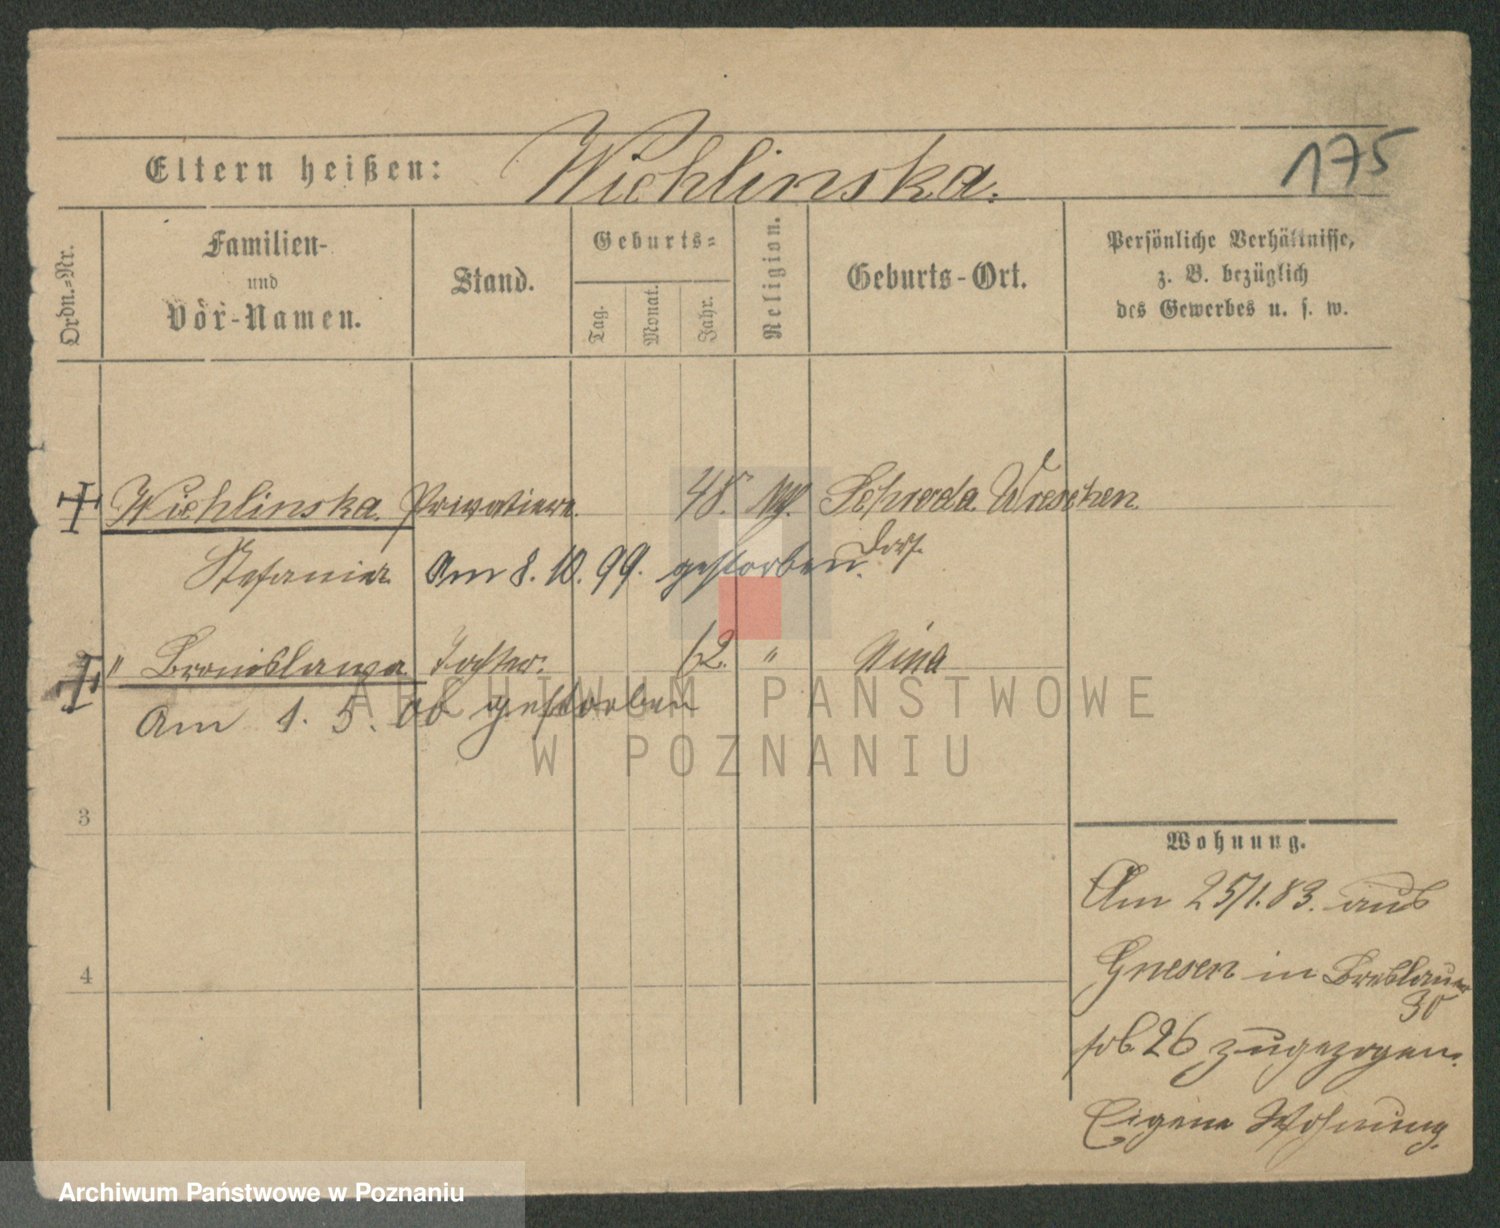 175
Eltern heißen: Wichlinska.
Ordn.-Nr.
Familien-
und
Vör-Namen.
Stand.
Geburts-
Tag.
Monat.
Jahr.
Religion.
Geburts-Ort.
Persönliche Verhältnisse,
z. B. bezüglich
des Gewerbes u. s. w.
Wichlinska Privatiere. 48. Schroda Wreschen
Stefania Am 8. 10. 99. gestorben.
" Bronislawa Tochter. 62. " Nina
Am 1. 5. 06 gestorben
3
4
Wohnung.
Am 25/1.83. aus
Gnesen in Breslauer
30
26 zugezogen.
Eigene Wohnung.
ARCHIWUM PAŃSTWOWE
W POZNANIU
Archiwum Państwowe w Poznaniu